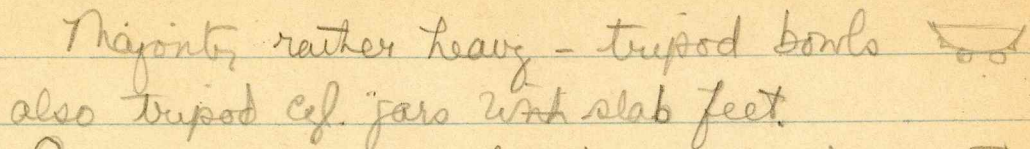 Majority rather heavy - tripod bowls
also tripod cyl. jars with slab feet.